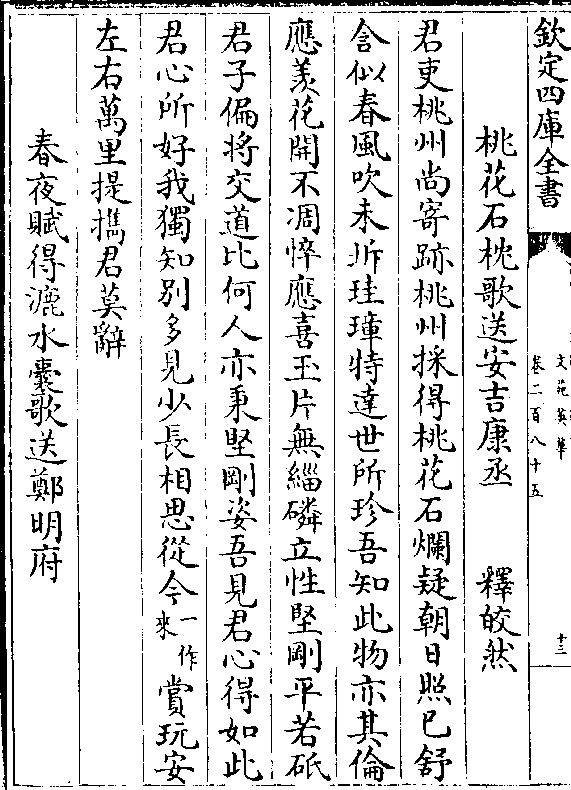 欽定四庫全書
文苑英華
卷二百八十五
十三
桃花石枕歌送安吉康丞　釋皎然
君吏桃州尚寄跡桃州採得桃花石爛疑朝日照已舒
含似春風吹未坼珪璋特達世所珍吾知此物亦其倫
應羡花開不凋悴應喜玉片無緇磷立性堅剛平若砥
君子偏將交道比何人亦秉堅剛姿吾見君心得如此
君心所好我獨知别多見少長相思從今一作來賞玩安
左右萬里提攜君莫辭
春夜賦得漉水囊歌送鄭明府